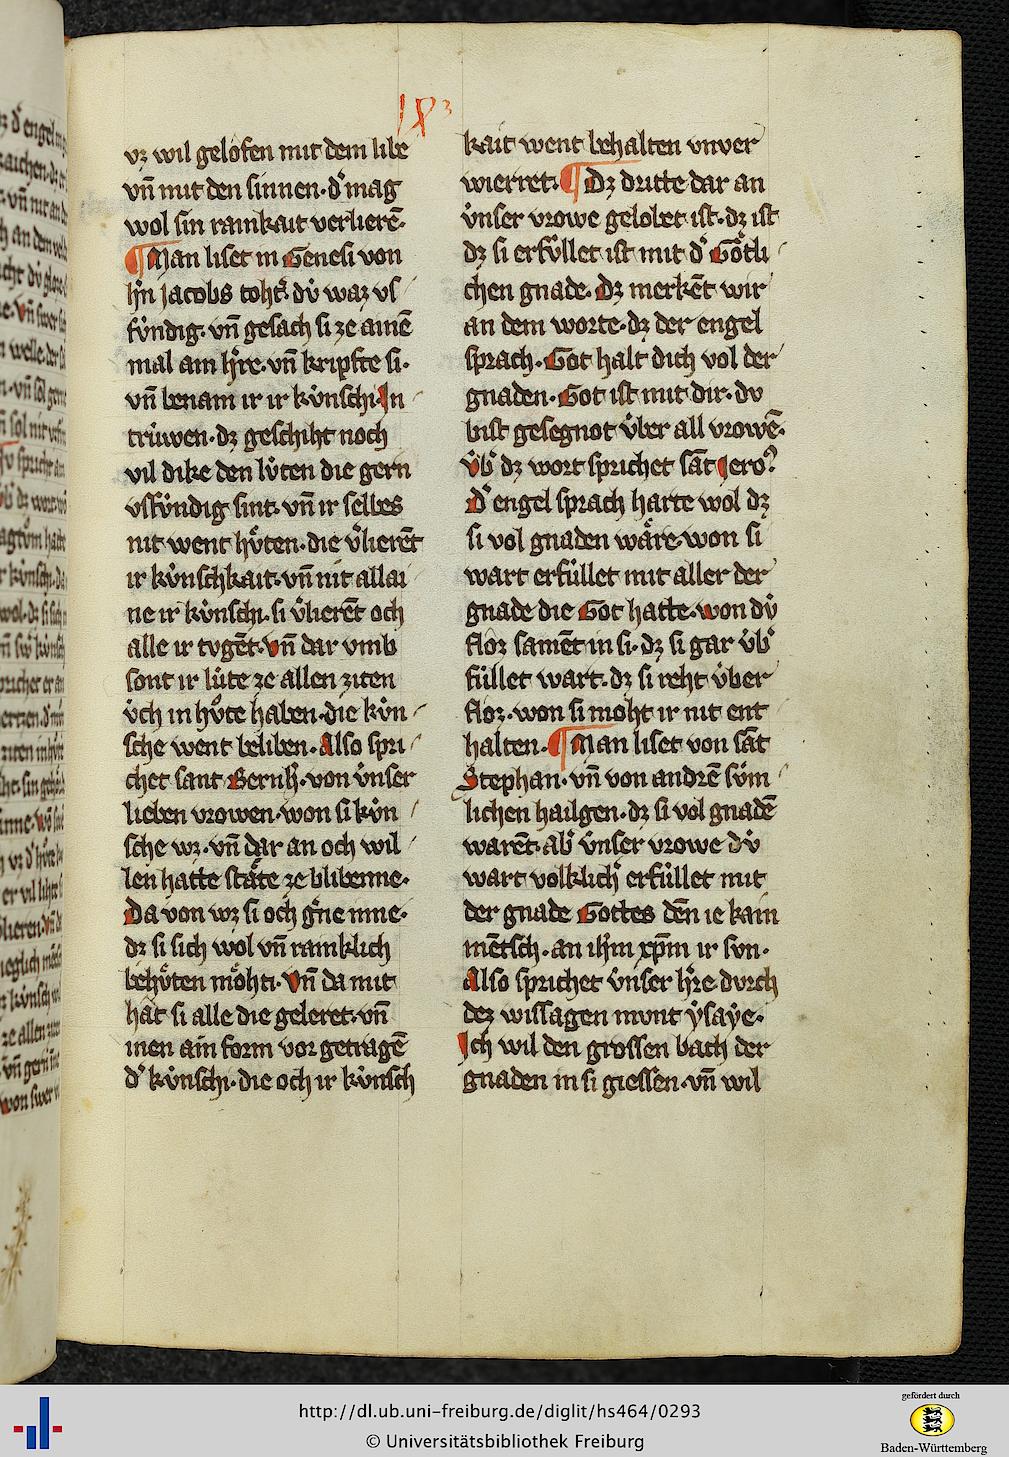 vz wil gelofen mit dem libe
vn̄ mit den sinnen· d᷑ mag
wol sin rainkait verlierē·
¶ Man liset in Genesi von
h᷑n jacobs toht᷑· dv́ waz vs
fv́ndig· vn̄ gesach si ze ainē
mal ain h᷑re· vn̄ kripfte si·
vn̄ benam ir ir kv́nschi· In
trúwen· dz geschiht noch
vil dike den lúten die gern
vsfv́ndig sint· vn̄ ir selbes
nit went hv̊ten· die v᷑lierēt
ir kv́nschkait· vn̄ nit allai
ne ir kv́nschi· si v᷑lierēt och
alle ir tvgēt· vn̄ dar vmb
sont ir lúte ze allen ziten
v́ch in hv̊te haben· die kv́n
sche went beliben· Also spri
chet sant Bernh᷑· von v́nser
lieben vrowen· won si kv́n
sche wz· vn̄ dar an och wil
len hatte stäte ze blibenne·
Da von wz si och g᷑ne inne·
dz si sich wol vn̄ rainklich
behv̊ten möhti· Vn̄ da mit
hat si alle die geleret· vn̄
inen ain form vor getragē
d᷑ kv́nschi· die och ir kv́nsch
kait went behalten vnver
wierret· ¶ Dz dritte dar an
v́nser vrowe gelobet ist· dz ist
dz si erfúllet ist mit d᷑ Götli
chen gnade· Dz merkēt wir
an dem worte· dz der engel
sprach· Got halt dich vol der
gnaden· Got ist mit dir· dv
bist gesegnot v́ber all vrowē·
V́b᷑ dz wort sprichet sāt Jero᷑
D᷑ engel sprach harte wol dz
si vol gnaden wäre· won si
wart erfúllet mit aller der
gnade die Got hatte· won dv́
floz samēt in si· dz si gar v́b᷑
fúllet wart· dz si reht v́ber
floz· won si moht ir nit ent
halten· ¶ Man liset von sāt
Stephan· vn̄ von andrē sv́m
lichen hailgen· dz si vol gnadē
warēt· ab᷑ v́nser vrowe dv́
wart volklich᷑ erfúllet mit
der gnade Gottes dēn ie kain
mētsch· an ih᷑m xp̄m ir svn·
Also sprichet v́nser h᷑re dvrch
dez wissagen mvnt ẏsaẏe·
Ich wil den grossen bach der
gnaden in si giessen· vn̄ wil
http://dl.ub.uni-freiburg.de/diglit/hs464/0293
© Universitätsbibliothek Freiburg
gefördert durch
Baden-Württemberg